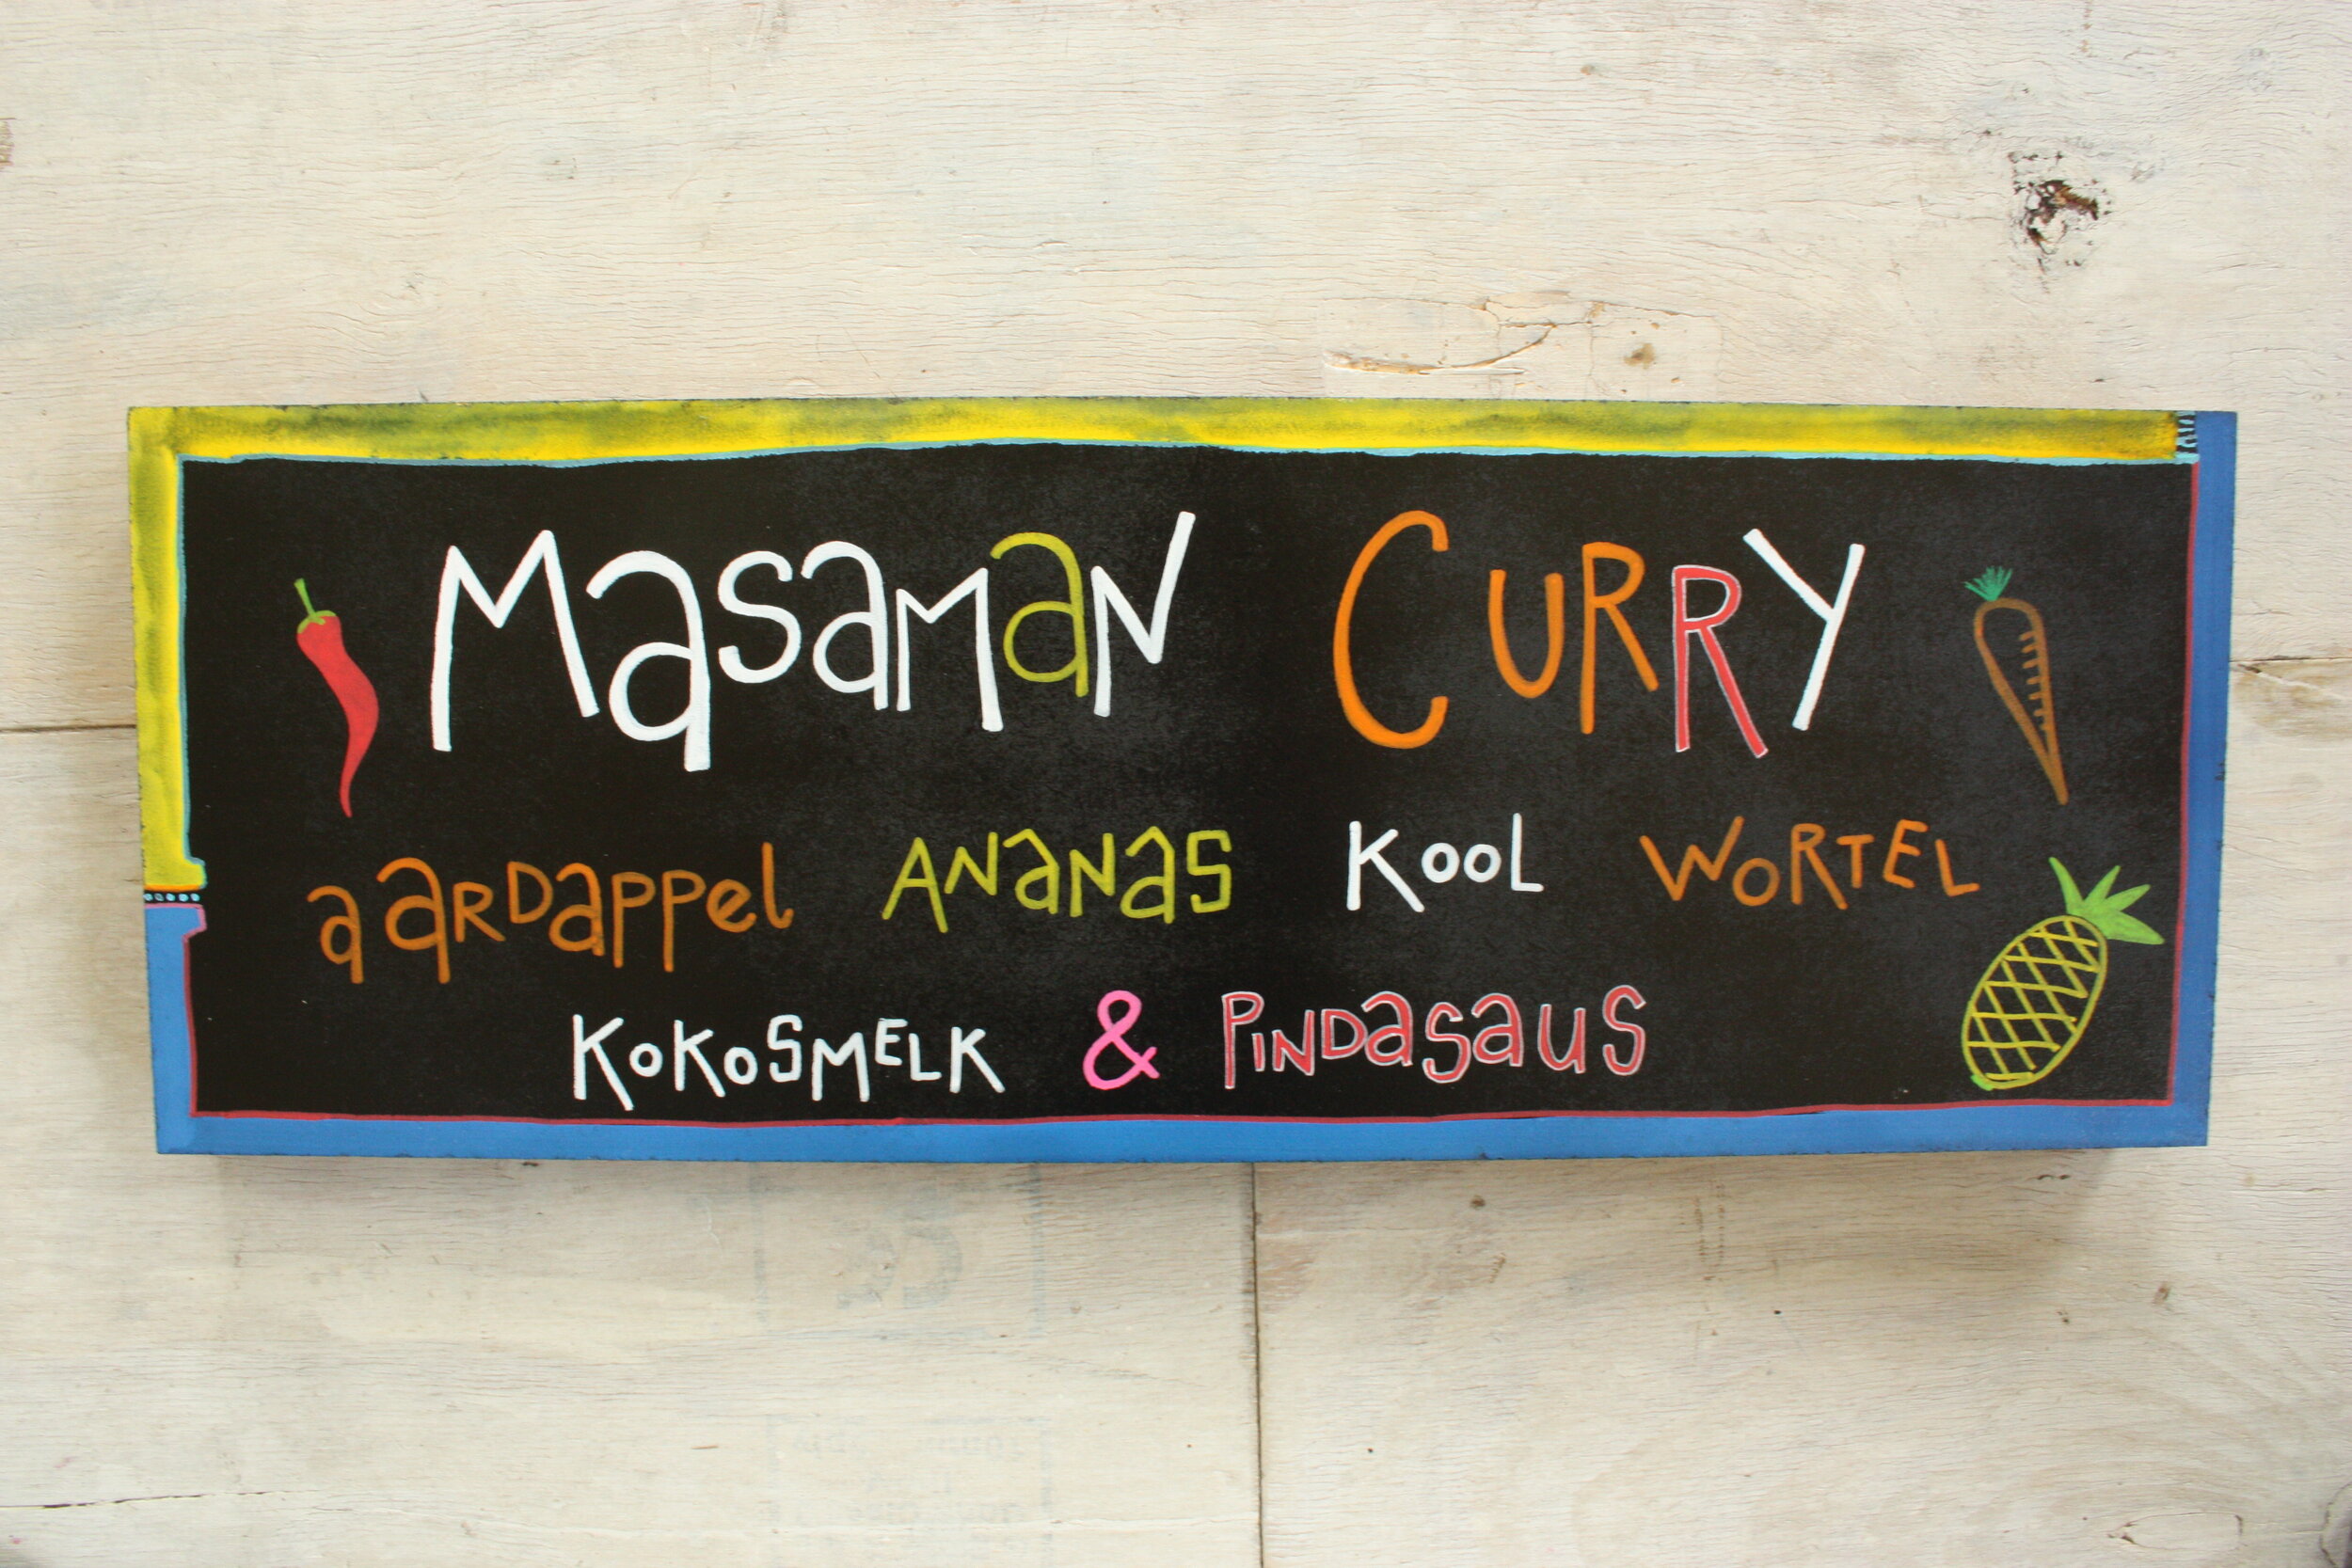 Masaman Curry
aardappel Ananas Kool Wortel
Kokosmelk & Pindasaus